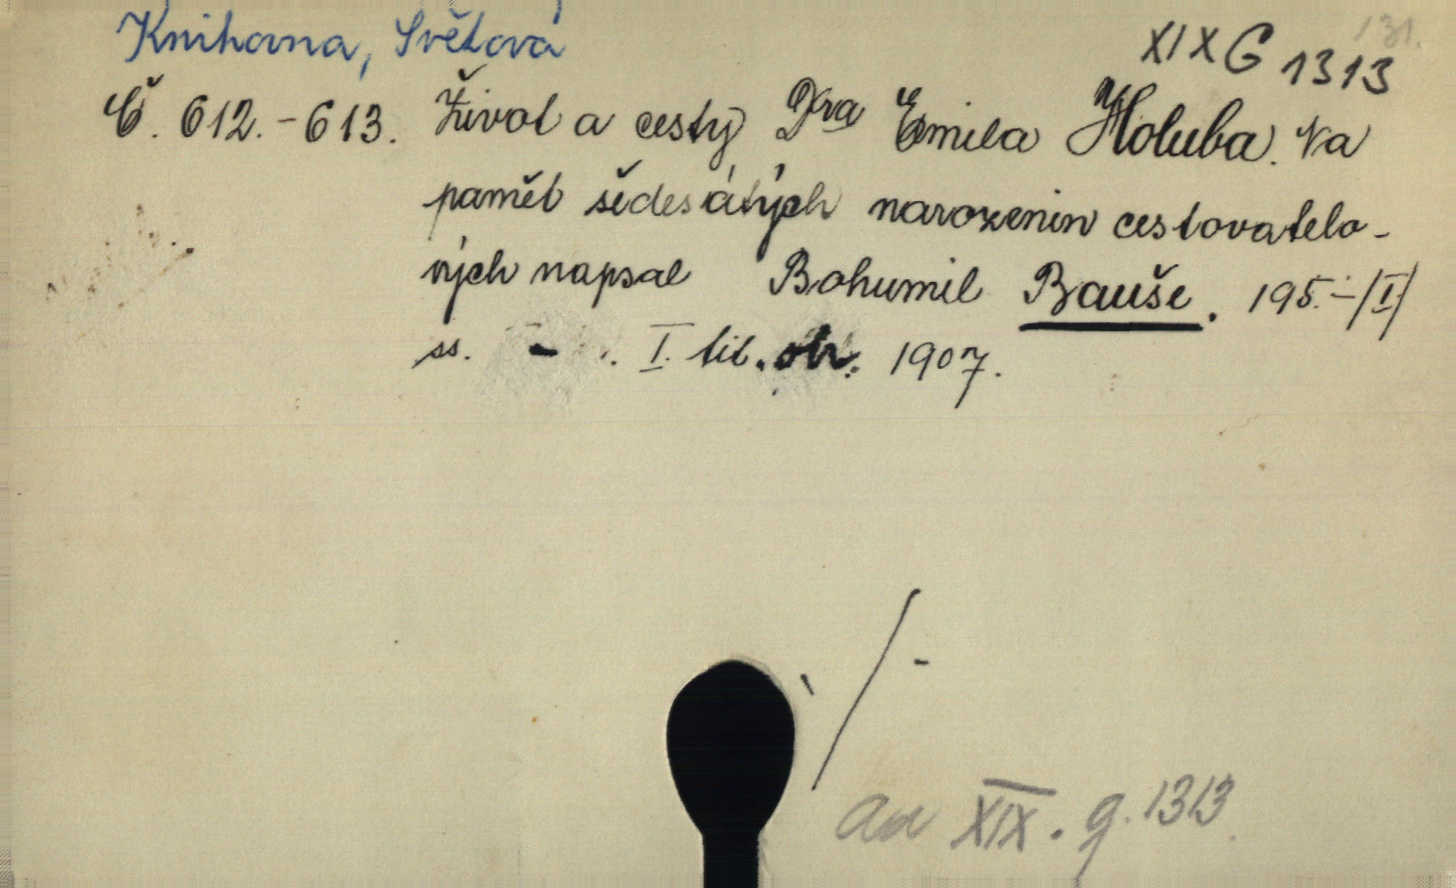 Knihovna, Světová
131.
XIX G 1313
Č. 612.-613. Život a cesty Dra Emila Holuba. Na
paměť šedesátých narozenin cestovatelo-
vých napsal Bohumil Bauše. 195.-/I/
ss. - I. tit. obr. 1907.
ad XIX. g. 1313.